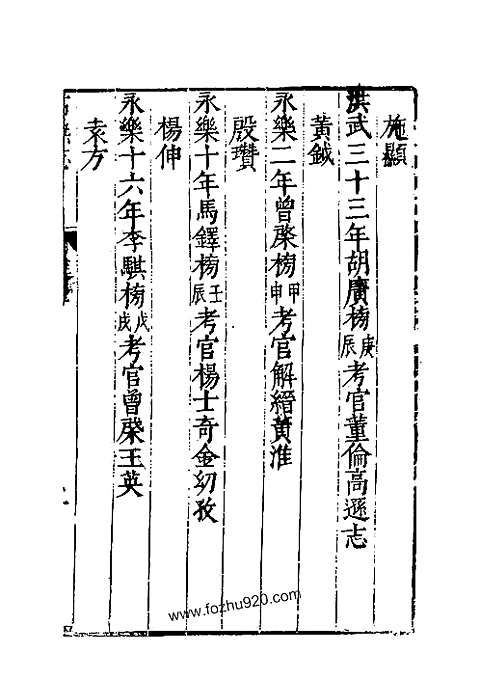 施顯
洪武三十三年胡廣榜庚辰考官董倫高遜志
黃鉞
永樂二年曾棨榜甲申考官解縉黃淮
殷瓚
永樂十年馬鐸榜壬辰考官楊士奇金幼孜
楊伸
永樂十六年李騏榜戊戌考官曾棨王英
袁方
www.fozhu920.com